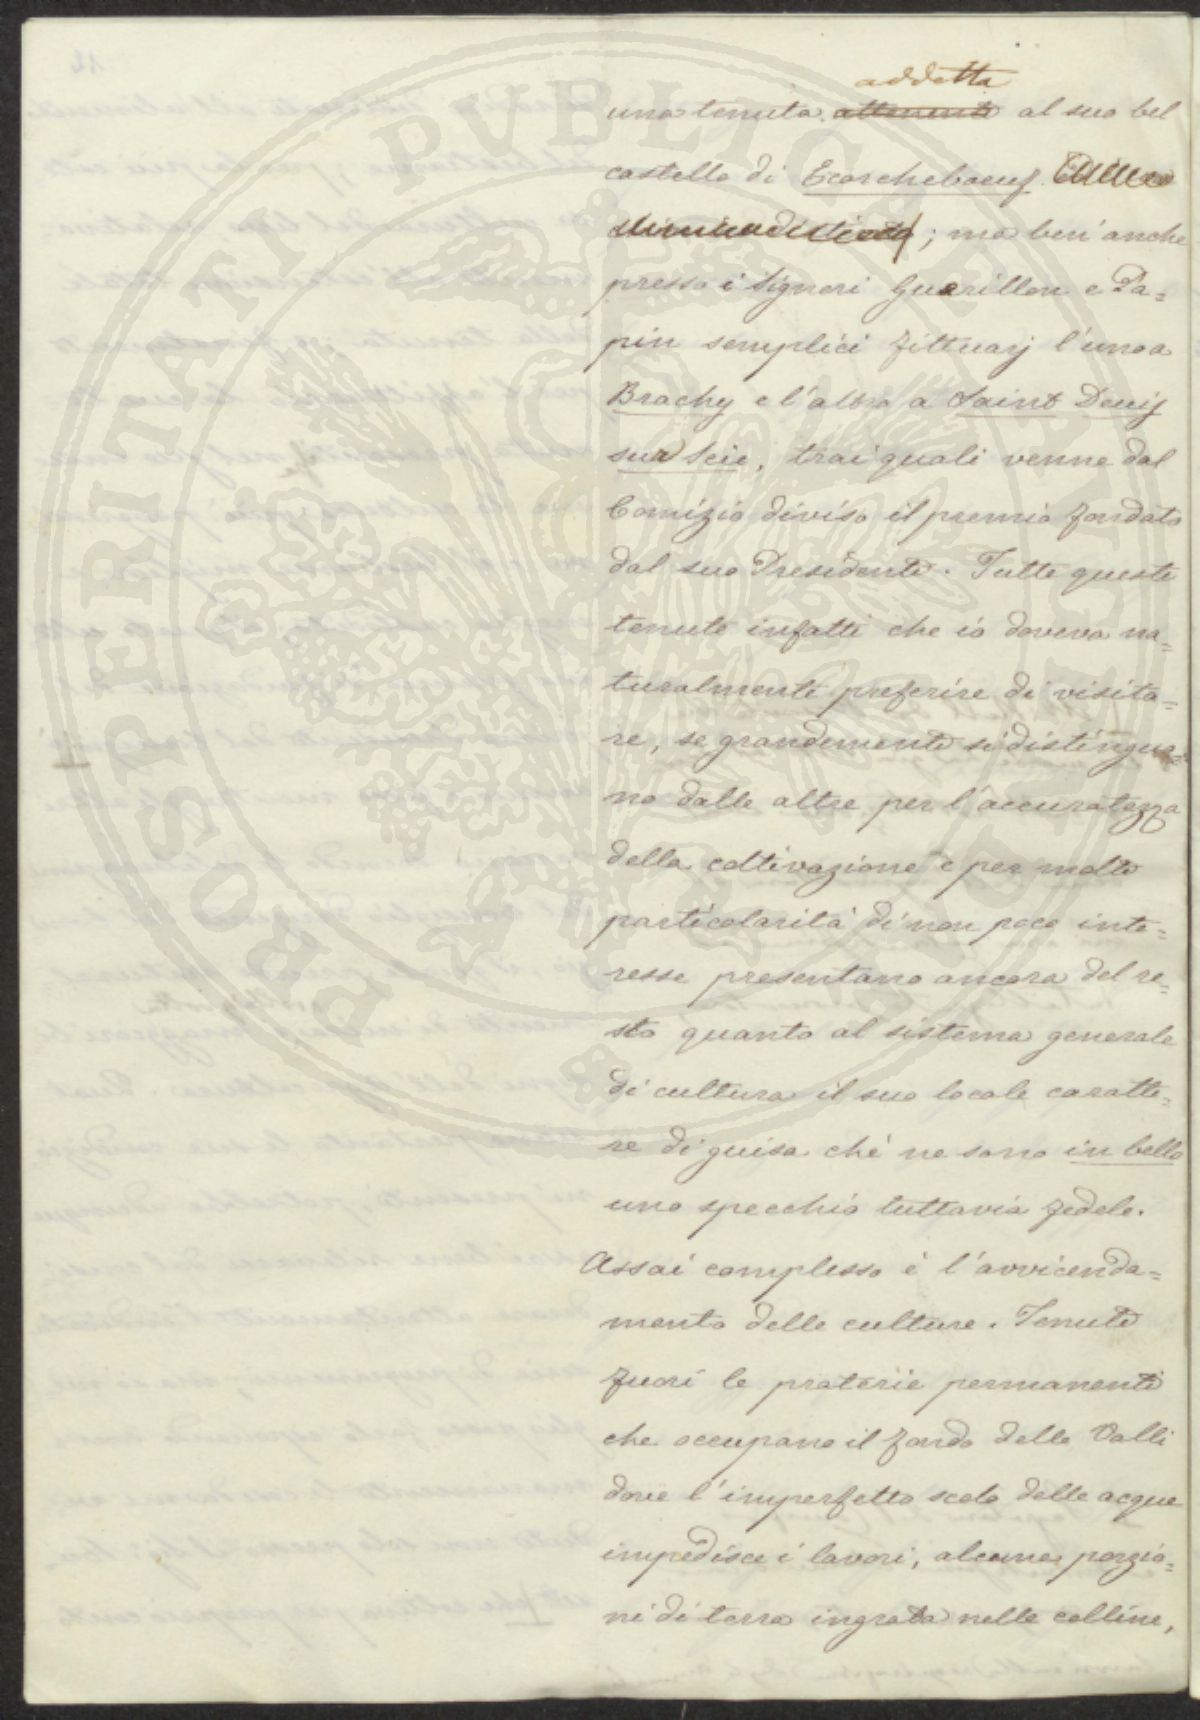 PROSPERITATI PUBLICAE AUGENDAE
addetta
una tenuta attenente al suo bel
castello di Ecorcheboeuf
; ma ben'anche
presso i Signori Guerillon e Pa=
pin semplici fittuarj l'uno a
Brachy e l'altro a Saint Denis
sur Scie, trai quali venne dal
Comizio diviso il premio fondato
dal suo Presidente. Tutte queste
tenute infatti che io doveva na=
turalmente preferire di visita=
re, se grandemente si distinguo=
no dalle altre per l'accuratezza
della coltivazione e per molte
particolarità di non poco inte=
resse presentano ancora del re=
sto quanto al sistema generale
di cultura il suo locale caratte=
re di guisa chè ne sono in bello
uno specchio tuttavia fedele.
Assai complesso è l'avvicenda=
mento delle culture. Tenute
fuori le praterie permanenti
che occupano il fondo delle Valli
dove l'imperfetto scolo delle acque
impedisce i lavori, alcune porzio=
ni di terra ingrata nelle colline,